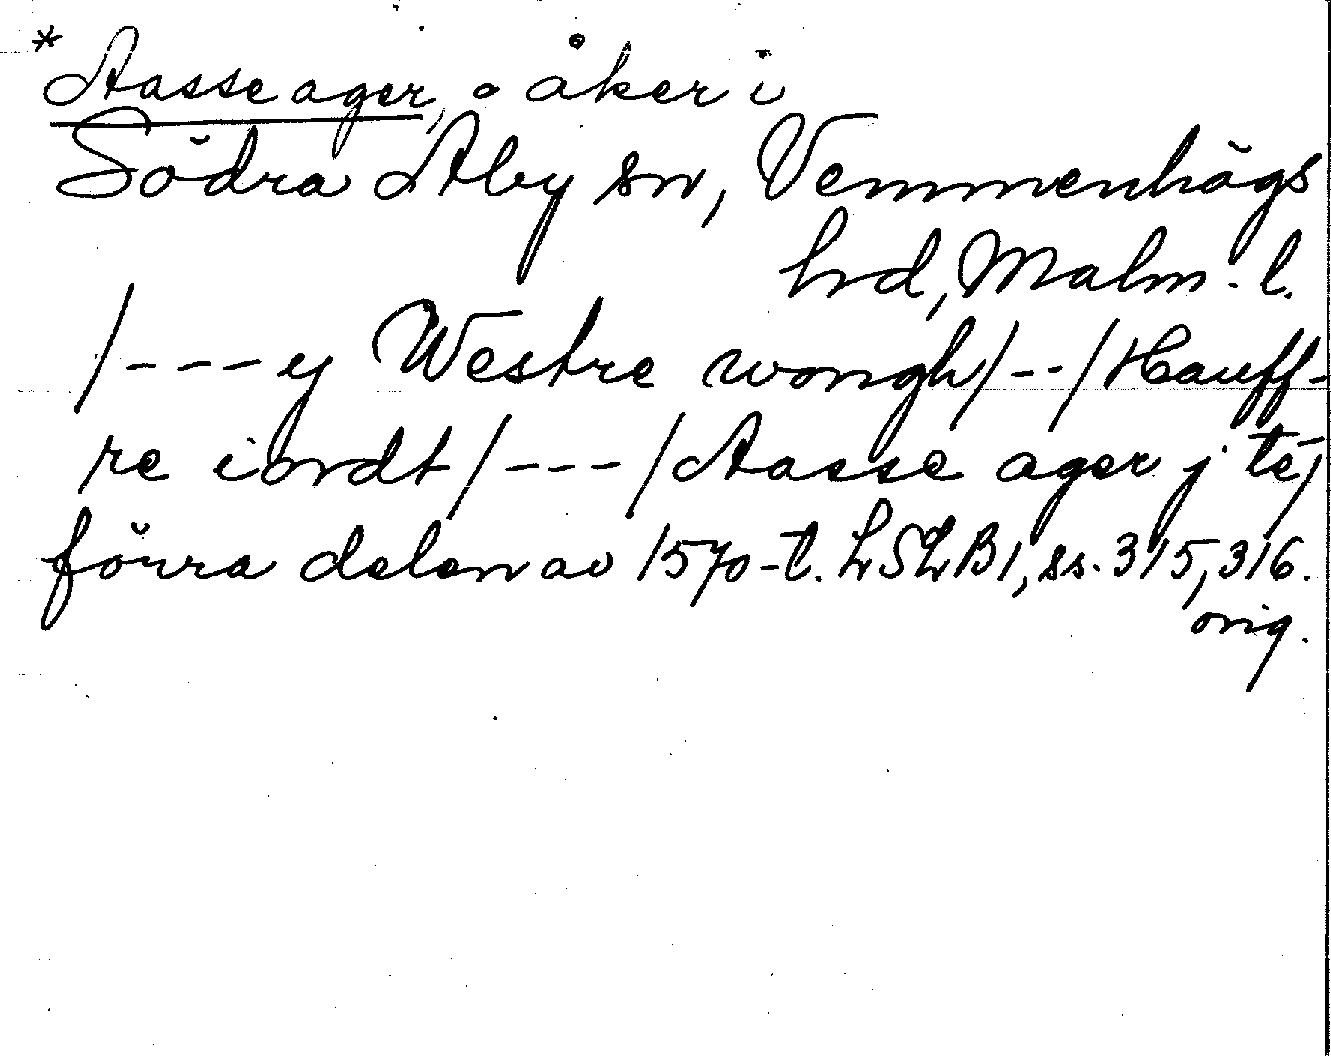 *Aasse ager, åker i
Södra Åby sn, Vemmenhögs
hd, Malm. l.
/---y Westre wongh/--/Hauff-
re iordt/---/Aasse ager j té/
förra delen av 1570-t. LSLB1, ss. 315, 316.
orig.